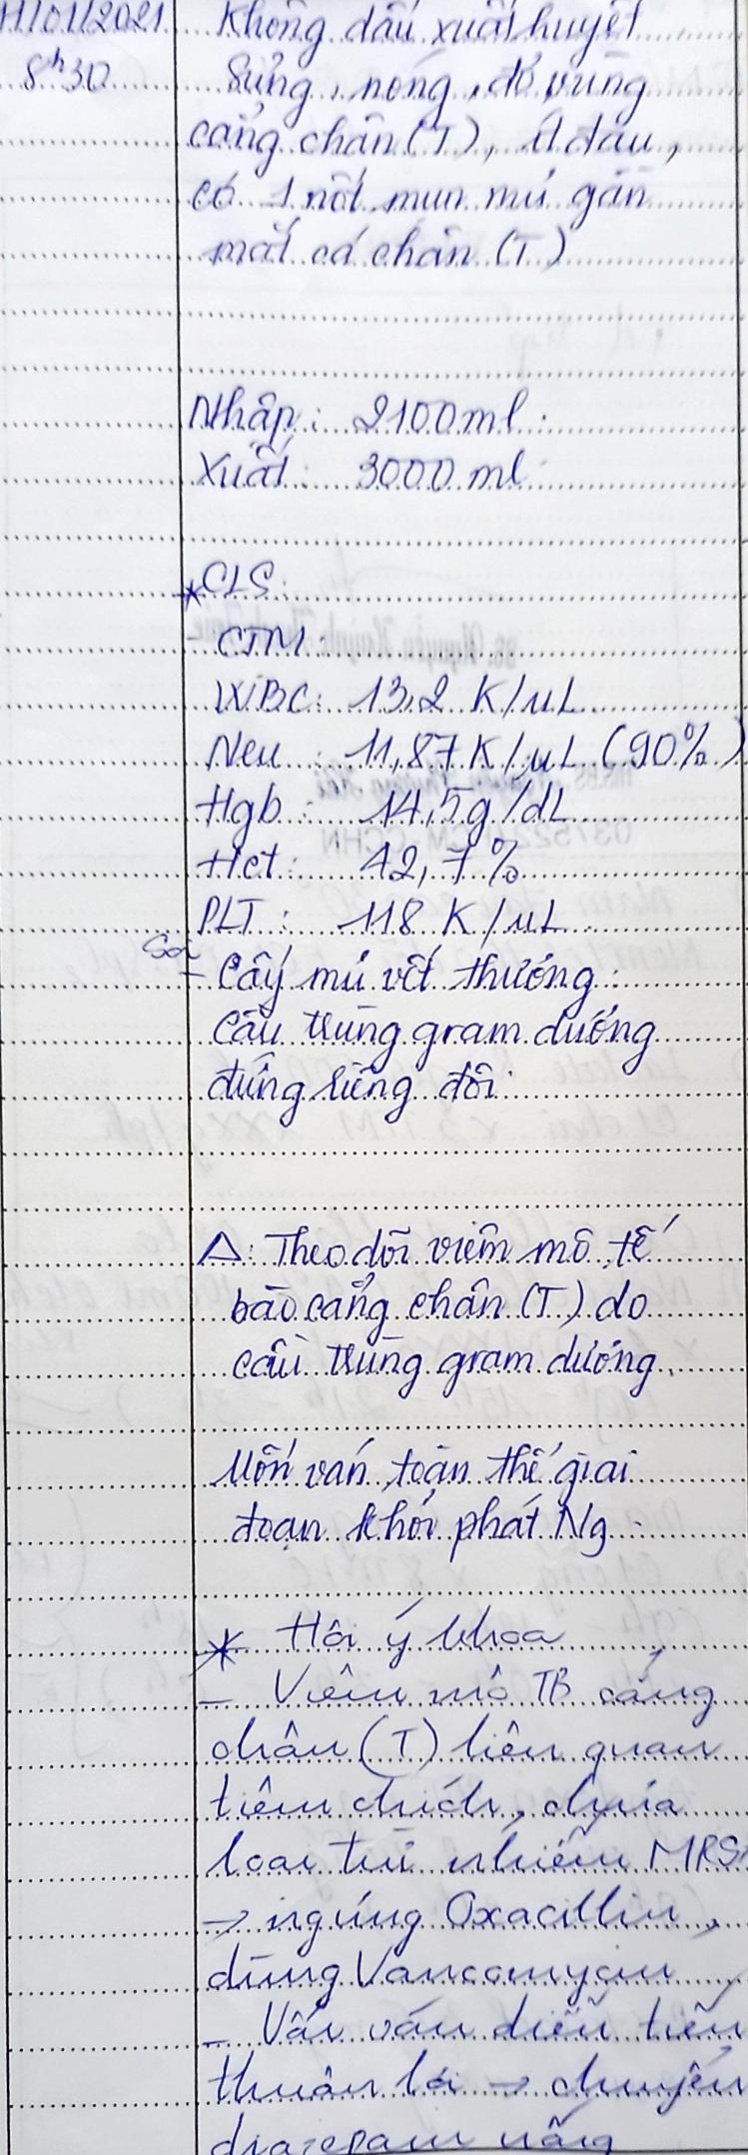 11/01/2021 Không dấu xuất huyết
8h30 Sưng, nóng, đỏ vùng
cẳng chân (T), ít đau,
có 1 nốt mụn mủ gần
mắt cá chân (T)
Nhập: 2100 ml
Xuất: 3000 ml
* CLS:
CTM:
WBC: 13,2 K/uL
Neu: 11,87 K/uL (90%)
Hgb: 14,5 g/dL
Hct: 42,7 %
PLT: 118 K/uL
Soi
- Cấy mủ vết thương:
Cầu trùng gram dương
đứng riêng đôi
Δ: Theo dõi viêm mô tế
bào cẳng chân (T) do
cầu trùng gram dương
Uốn ván toàn thể giai
đoạn khởi phát Ng
* Hội ý khoa
- Viêm mô TB cẳng
chân (T) liên quan
tiêm chích, chưa
loại trừ nhiễm MRSA
→ ngưng Oxacillin,
dùng Vancomycin
- Vấn ván diễn tiến
thuận lợi → chuyển
diazepam uống